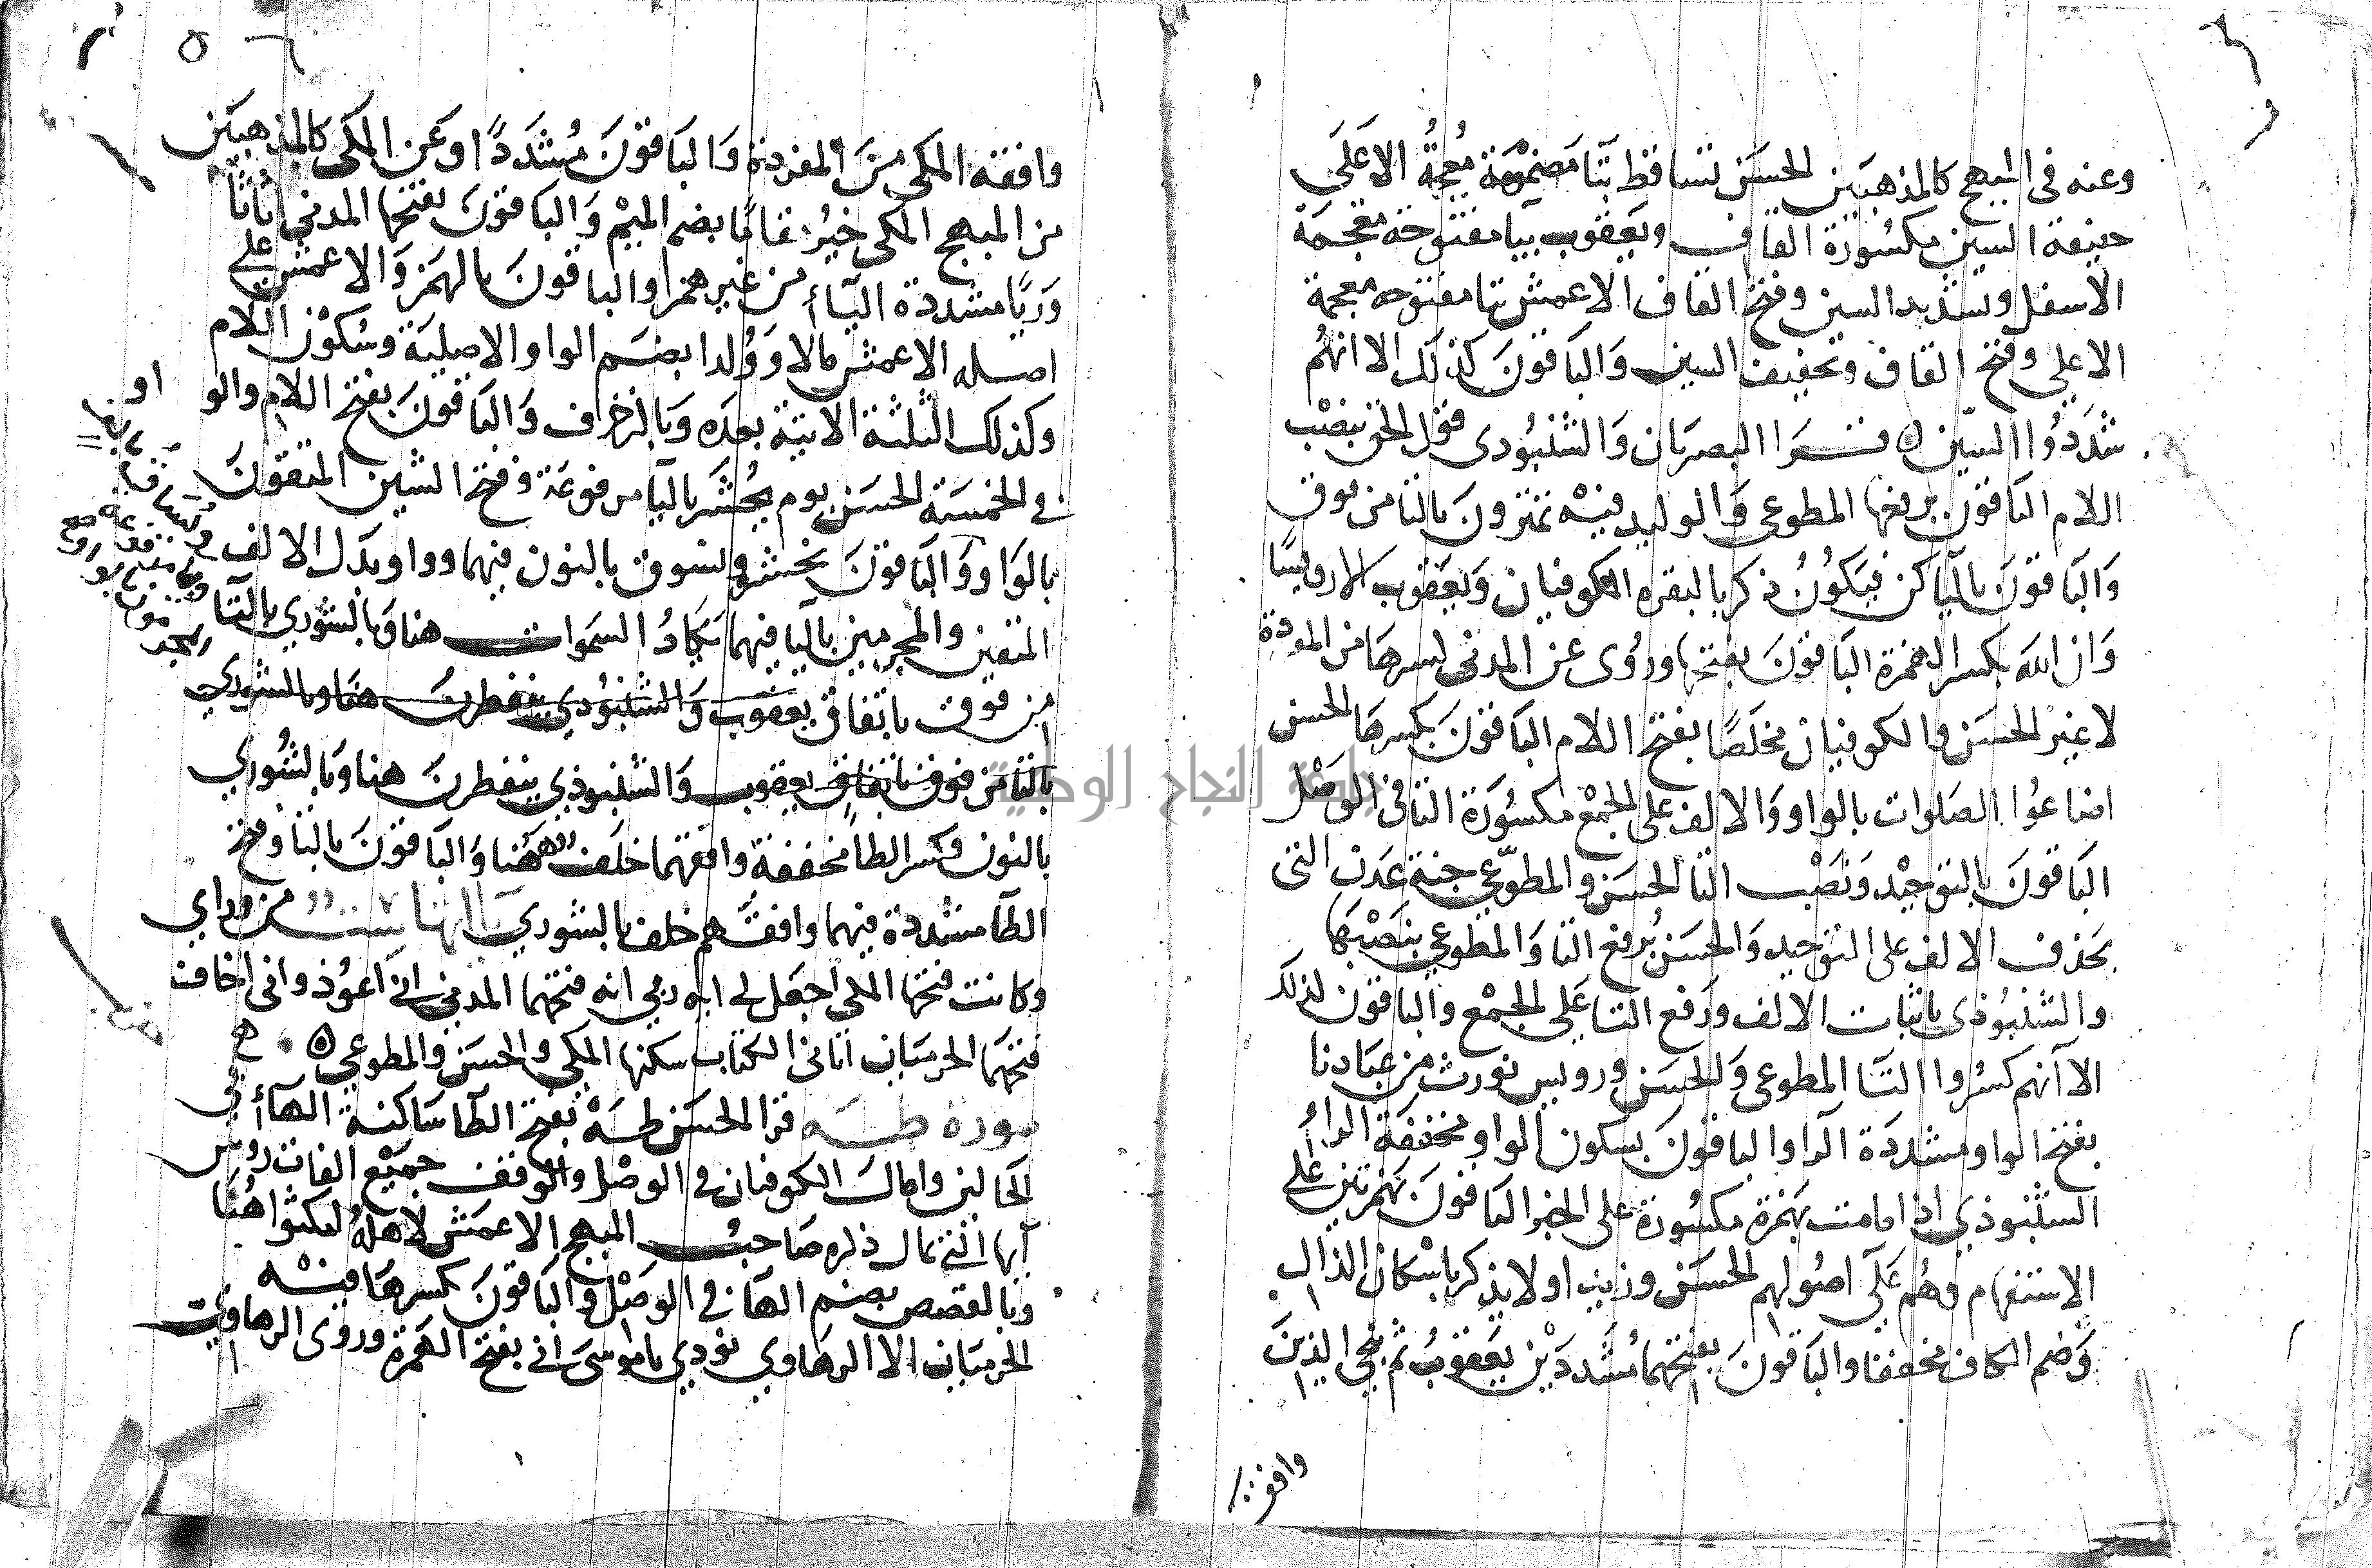 وعنه فى المبهج كالمذهبين الحسن تساقط بتا مضمومة معجمة الاعلى
خفيفة السين مكسورة القاف ويعقوب بيا مفتوحة معجمة
الاسفل وتشديد السين وفتح القاف الاعمش بتا مفتوحه معجمة
الاعلى وفتح القاف وتخفيف السين والباقون كذلك الا انهم
شددوا السين ٥ قرا البصريان والشنبوذى قول الحق بنصب
اللام الباقون برفعها المطوعى والوليد فيه تمترون بالتا من فوق
والباقون باليا كن فيكون ذكر بالبقره الكوفيان ويعقوب الا رويسا
وان الله بكسر الهمزة الباقون بفتحها وروى عن المدنى كسرها من المفردة
لا غير الحسن والكوفيان مخلصا بفتح اللام الباقون بكسرها الحسن
اضاعوا الصلوات بالواو والالف على الجمع مكسورة التا فى الوصل
الباقون بالتوحيد ونصب التا الحسن والمطوعى جنة عدن التى
بحذف الالف على التوحيد والحسن برفع التا والمطوعى بنصبها
والشنبوذى باثبات الالف ورفع التا على الجمع والباقون كذلك
الا انهم كسروا التا المطوعى والحسن ورويس نورث من عبادنا
بفتح الواو مشددة الرا والباقون بسكون الواو مخففة الرا
الشنبوذي اذا مامت بهمزة مكسورة على الخبر الباقون بهمزتين على
الاستفهام وهم على اصولهم الحسن وزيد اولا يذكر باسكان الذال
وضم الكاف مخففا والباقون بفتحهما مشددين يعقوب ثم ننجى الذين
وافقه
وافقه المكى من المفردة والباقون مشددا وعن المكى كالمذهبين
من المبهج المكى خير مقاما بضم الميم والباقون بفتحها المدنى اثاثا
وريا مشددة اليا من غير همز والباقون بالهمز والاعمش على
اصله الاعمش مالا وولدا بضم الواو الاصلية وسكون اللام
وكذلك الثلثة الاتية بعده وبالزخرف والباقون بفتح اللام والواو
فى الخمسة الحسن يوم يحشر باليا مرفوعة وفتح الشين المتقون
بالواو والباقون نحشر ونسوق بالنون فيهما وواو بدل الالف
المتقين والمجرمين باليا فيهما يكاد السموات هنا وبالشوري بالتا
من فوق باتفاق يعقوب والشنبوذي ينفطرن هنا وبالشوري
بالتا من فوق باتفاق يعقوب والشنبوذي ينفطرن هنا وبالشوري
بالنون وكسر الطا مخففة وافقهما خلف ههنا والباقون بالتا وفتح
الطا مشددة فيهما وافقهم خلف بالشوري من وراي
وكانت فتحها المكى اجعل لى ايه ربى انه فتحهما المدنى انى اعوذ وانى اخاف
فتحهما الحرميان اتانى الكتاب سكنها المكى والحسن والمطوعى ٥
سورة طه قرا الحسن طه بفتح الطا ساكنة الها فى
الحالين وامال الكوفيان فى الوصل والوقف جميع الفات روس
آيها التى تمال ذكره صاحب المبهج الاعمش لاهله امكثوا هنا
وبالقصص بضم الها فى الوصل والباقون بكسرها منه
الحرميان الا الرهاوي نودي ياموسى انى بفتح الهمزة وروى الرهاوي